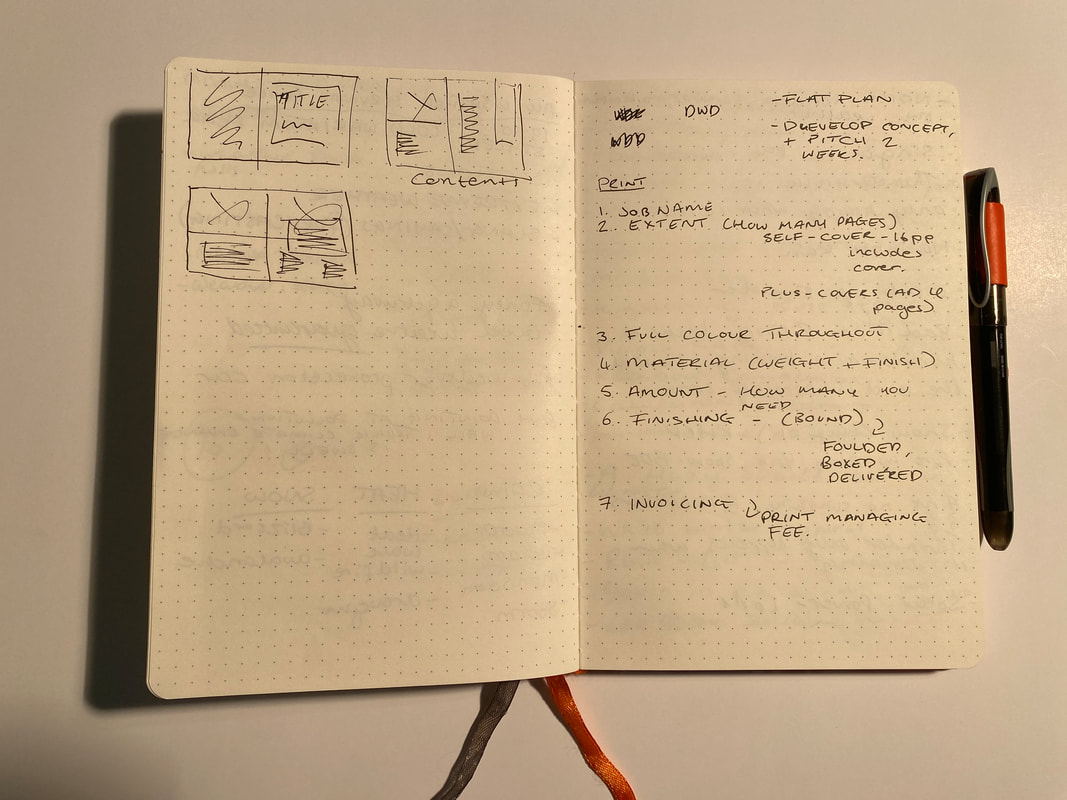 TITLE
Contents
DWD
- FLAT PLAN
- DUEVELOP CONCEPT,
+ PITCH 2
WEEKS.
PRINT
1. JOB NAME
2. EXTENT (HOW MANY PAGES)
SELF-COVER - 16pp
includes
cover.
PLUS-COVERS (AD 4
pages)
3. FULL COLOUR THROUGHOUT
4. MATERIAL (WEIGHT + FINISH)
5. AMOUNT - HOW MANY YOU
NEED
6. FINISHING - (BOUND)
FOULDED,
BOXED,
DELIVERED
7. INVOICING
PRINT MANAGING
FEE.